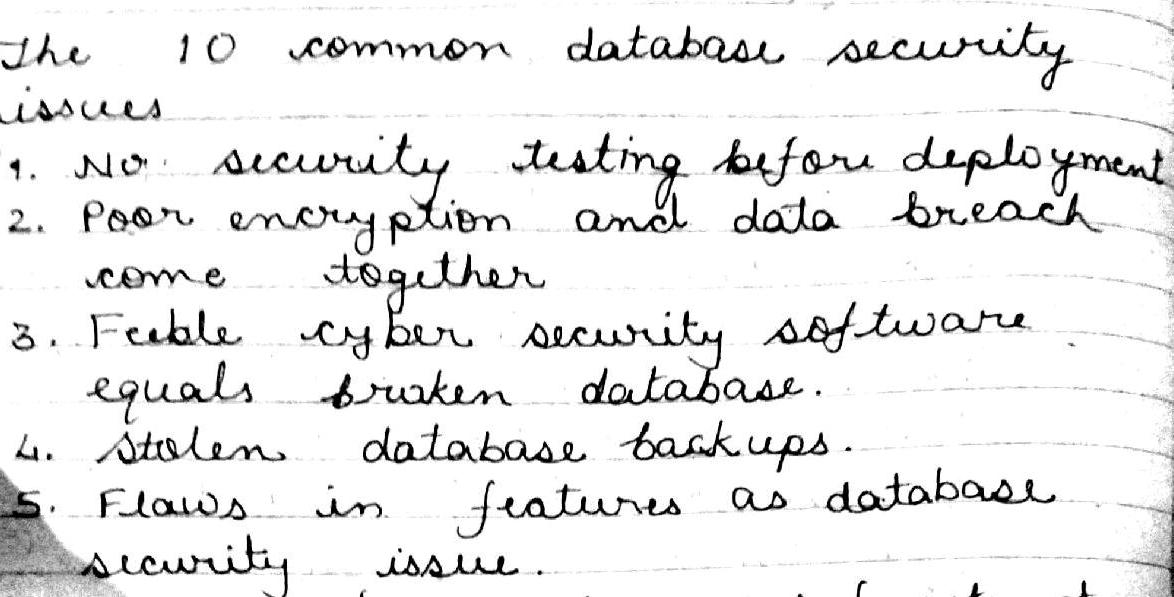 The 10 common database security
issues
1. No security testing before deployment
2. Poor encryption and data breach
come together
3. Feeble cyber security software
equals broken database.
4. Stolen database backups.
5. Flaws in features as database
security issue.